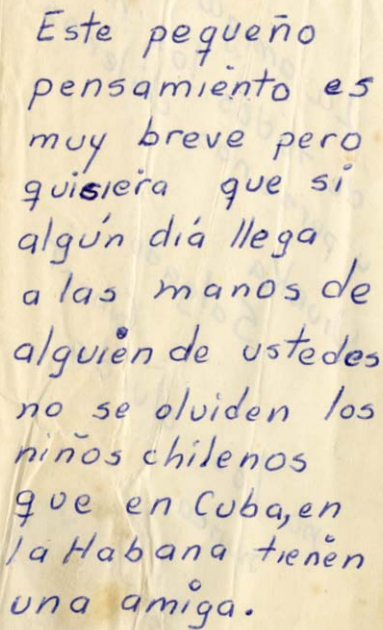 Este pequeño
pensamiento es
muy breve pero
quisiera que si
algún diá llega
a las manos de
alguien de ustedes
no se olviden los
niños chilenos
que en Cuba, en
la Habana tienen
una amiga.